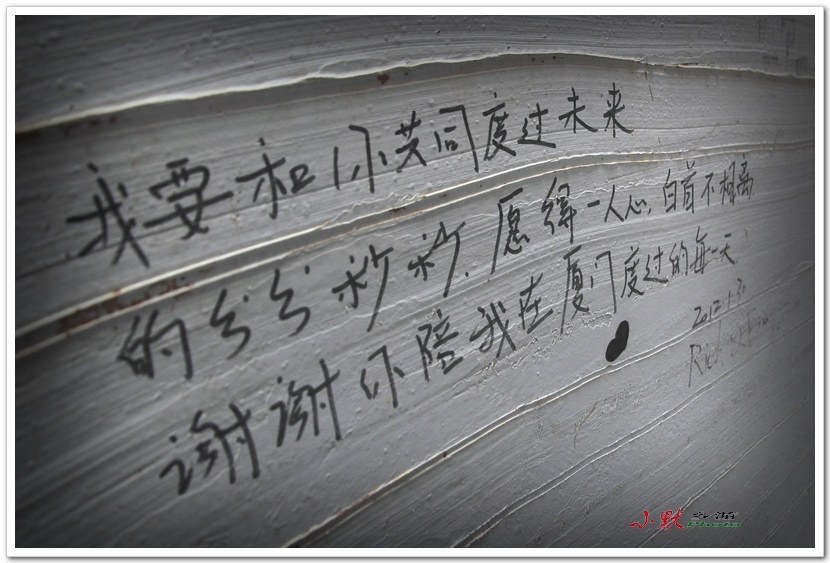 我要和你共同度过未来
的分分秒秒,愿得一人心,白首不相离
谢谢你陪我在厦门度过的每一天
2012.1.30
小默
Photo